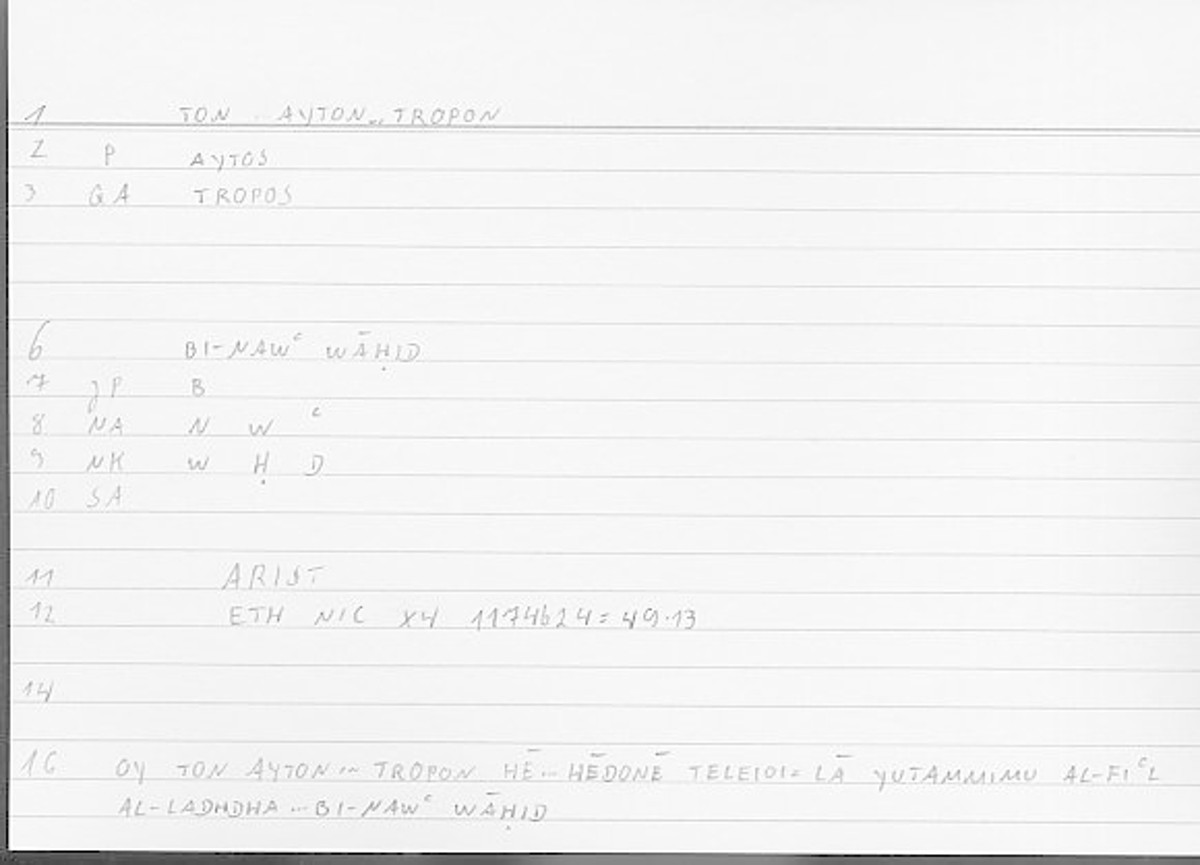 1 TON . AYTON .. TROPON
2 P AYTOS
3 GA TROPOS
6 BI-NAWᶜ WĀḤID
7 JP B
8 NA N W ᶜ
9 NK W Ḥ D
10 SA
11 ARIST
12 ETH NIC X4 1174b24 = 49.13
14
16 OY TON AYTON ... TROPON HĒ ... HĒDONĒ TELEIOI = LĀ YUTAMMIMU AL-FIᶜL
AL-LADHDHA ... BI-NAWᶜ WĀḤID